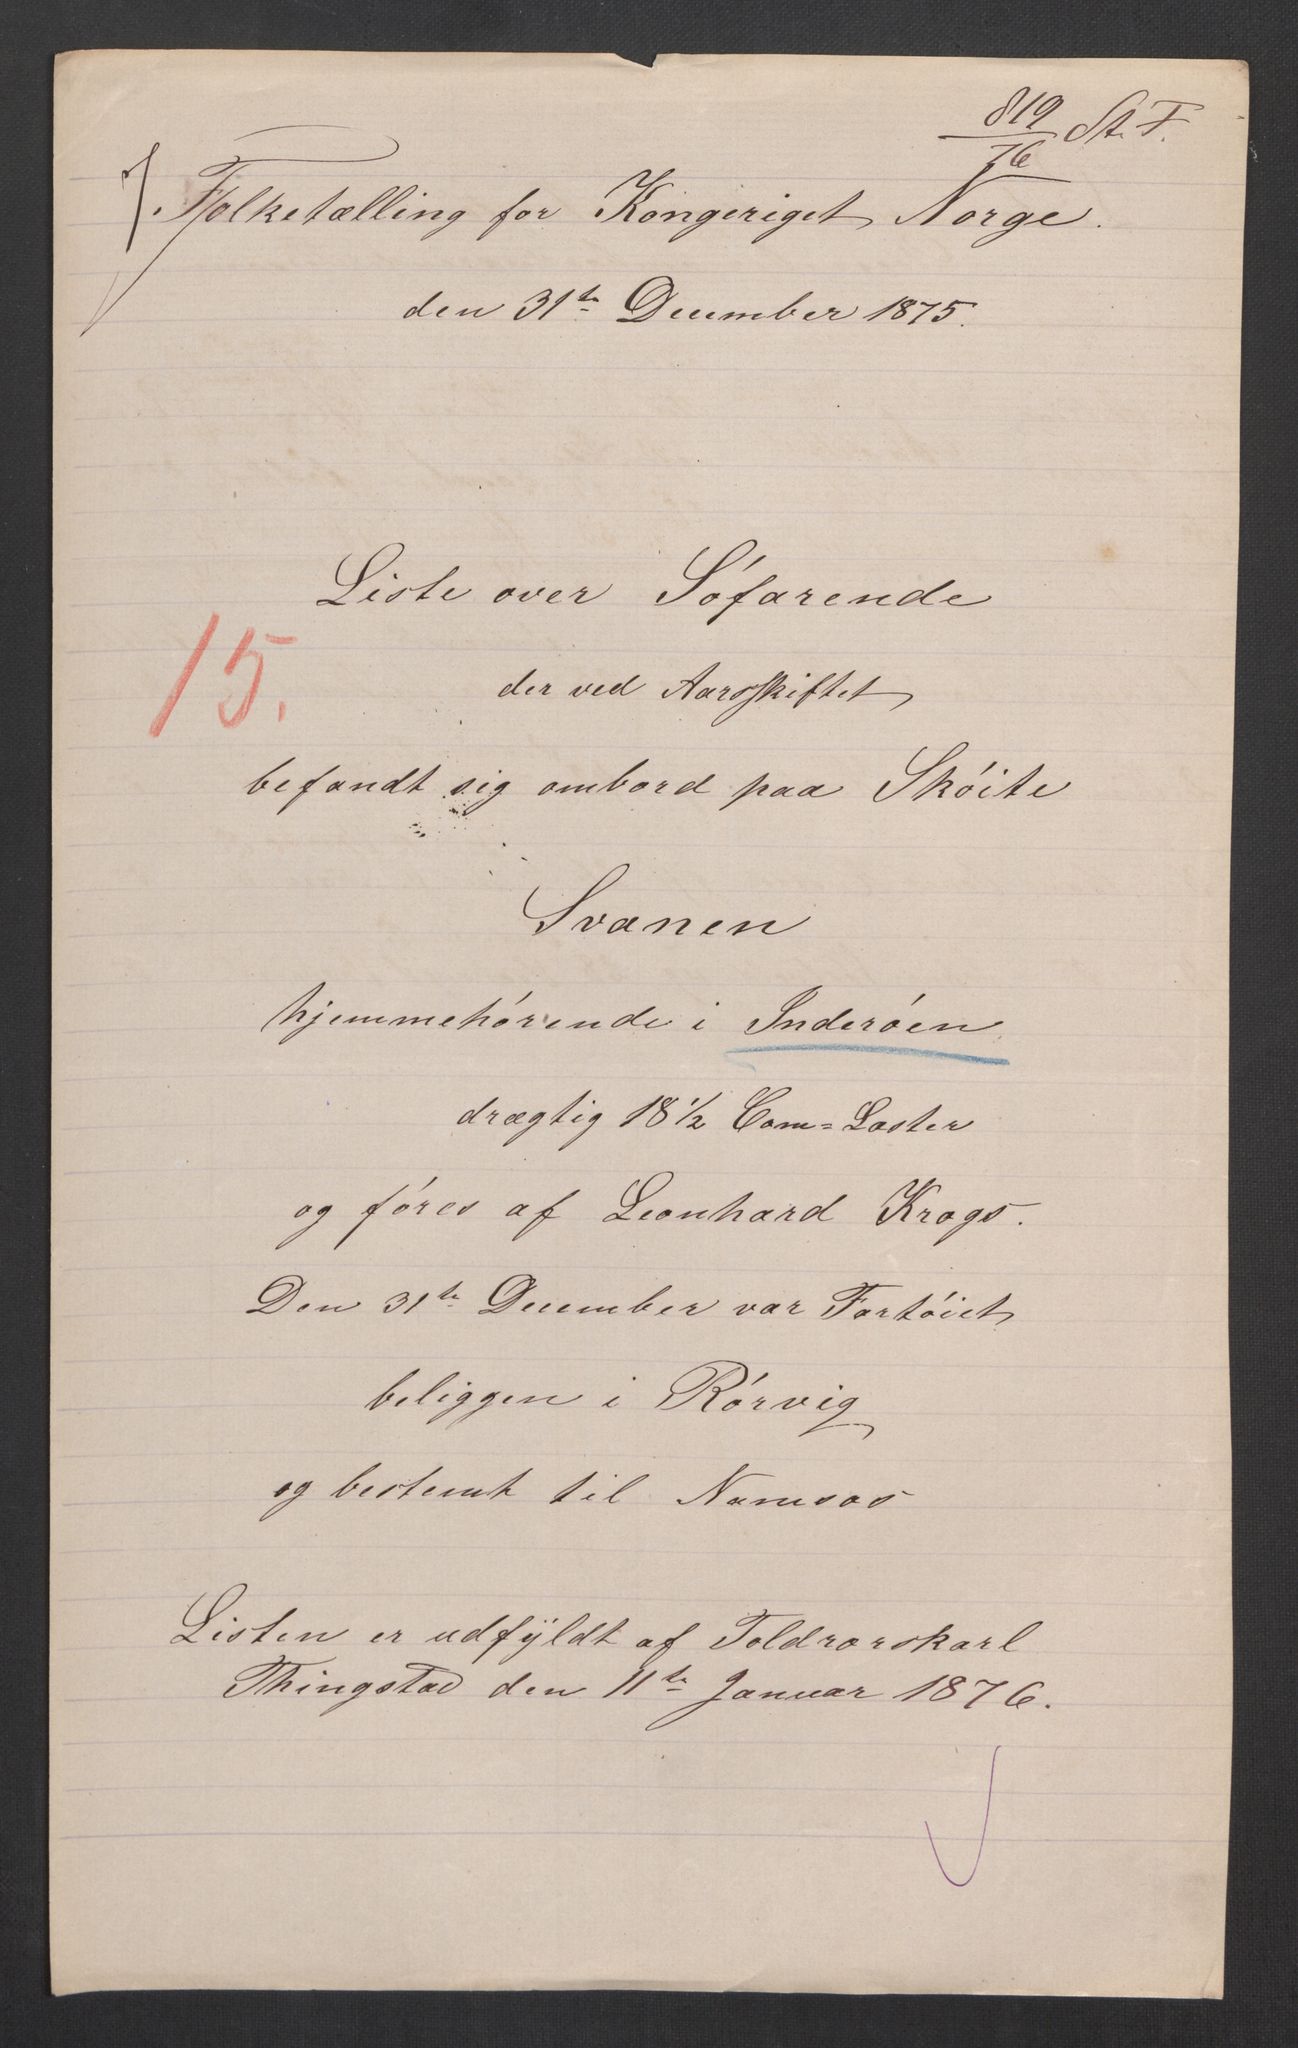 819/76 St. F.
Folketælling for Kongeriget Norge.
den 31te December 1875.
Liste over Söfarende
15.
der ved Aarsskiftet
befandt sig ombord paa Sköite
Svanen
hjemmehörende i Inderöen.
drægtig 18 1/2 Com=Læster
og föres af Leonhard Krogs.
Den 31te December var Fartöiet
beliggen i Rörvig
og bestemt til Namsos
Listen er udfÿldt af Toldrorskarl
Thingstad den 11te Januar 1876.